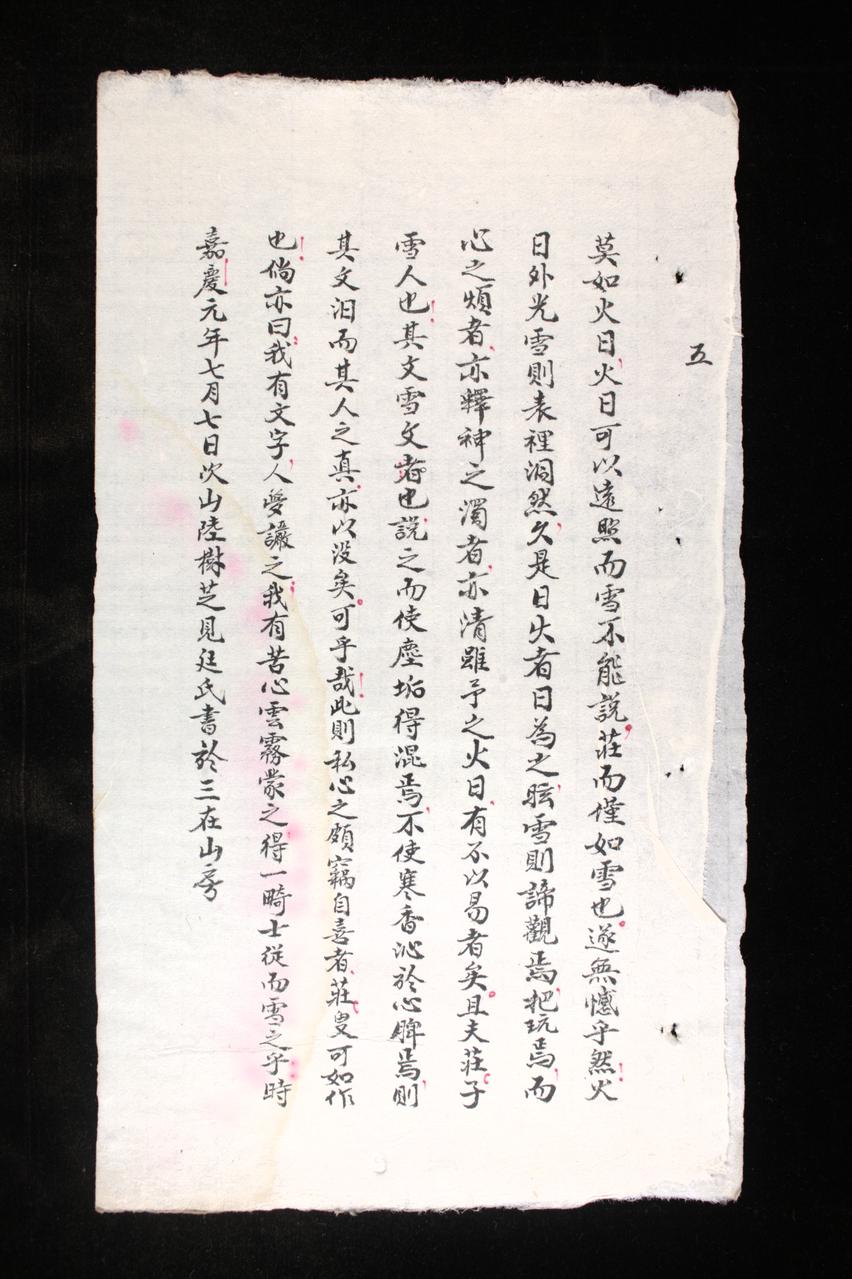 五
莫如火日火日可以遠照而雪不能説莊而僅如雪也遂無憾乎然火
日外光雪則表裡洞然久是日火者日為之眩雪則諦觀焉把玩焉而
心之煩者亦釋神之濁者亦清雖予之火日有不以易者矣且夫莊子
雪人也其文雪文者也説之而使塵垢得混焉不使寒香沁於心脾焉則
其文汨而其人之真亦以沒矣可乎哉此則私心之頗竊自喜者莊叟可如作
也倘亦曰我有文字人夢讝之我有苦心雲霧蒙之得一畸士從而雪之乎時
嘉慶元年七月七日次山陸樹芝見廷氏書於三在山房